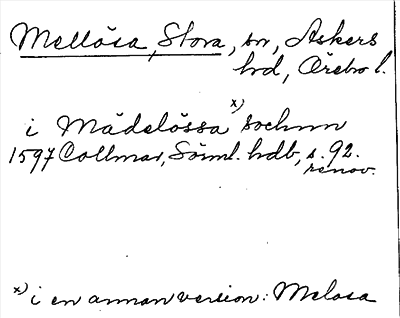 Mellösa, Stora, sn, Askers
hrd, Örebro l.
i Mädelössa x) sochnn
1597 Collmar, Sörml. hdb, s. 92.
renov.
x) i en annan version: Melosa